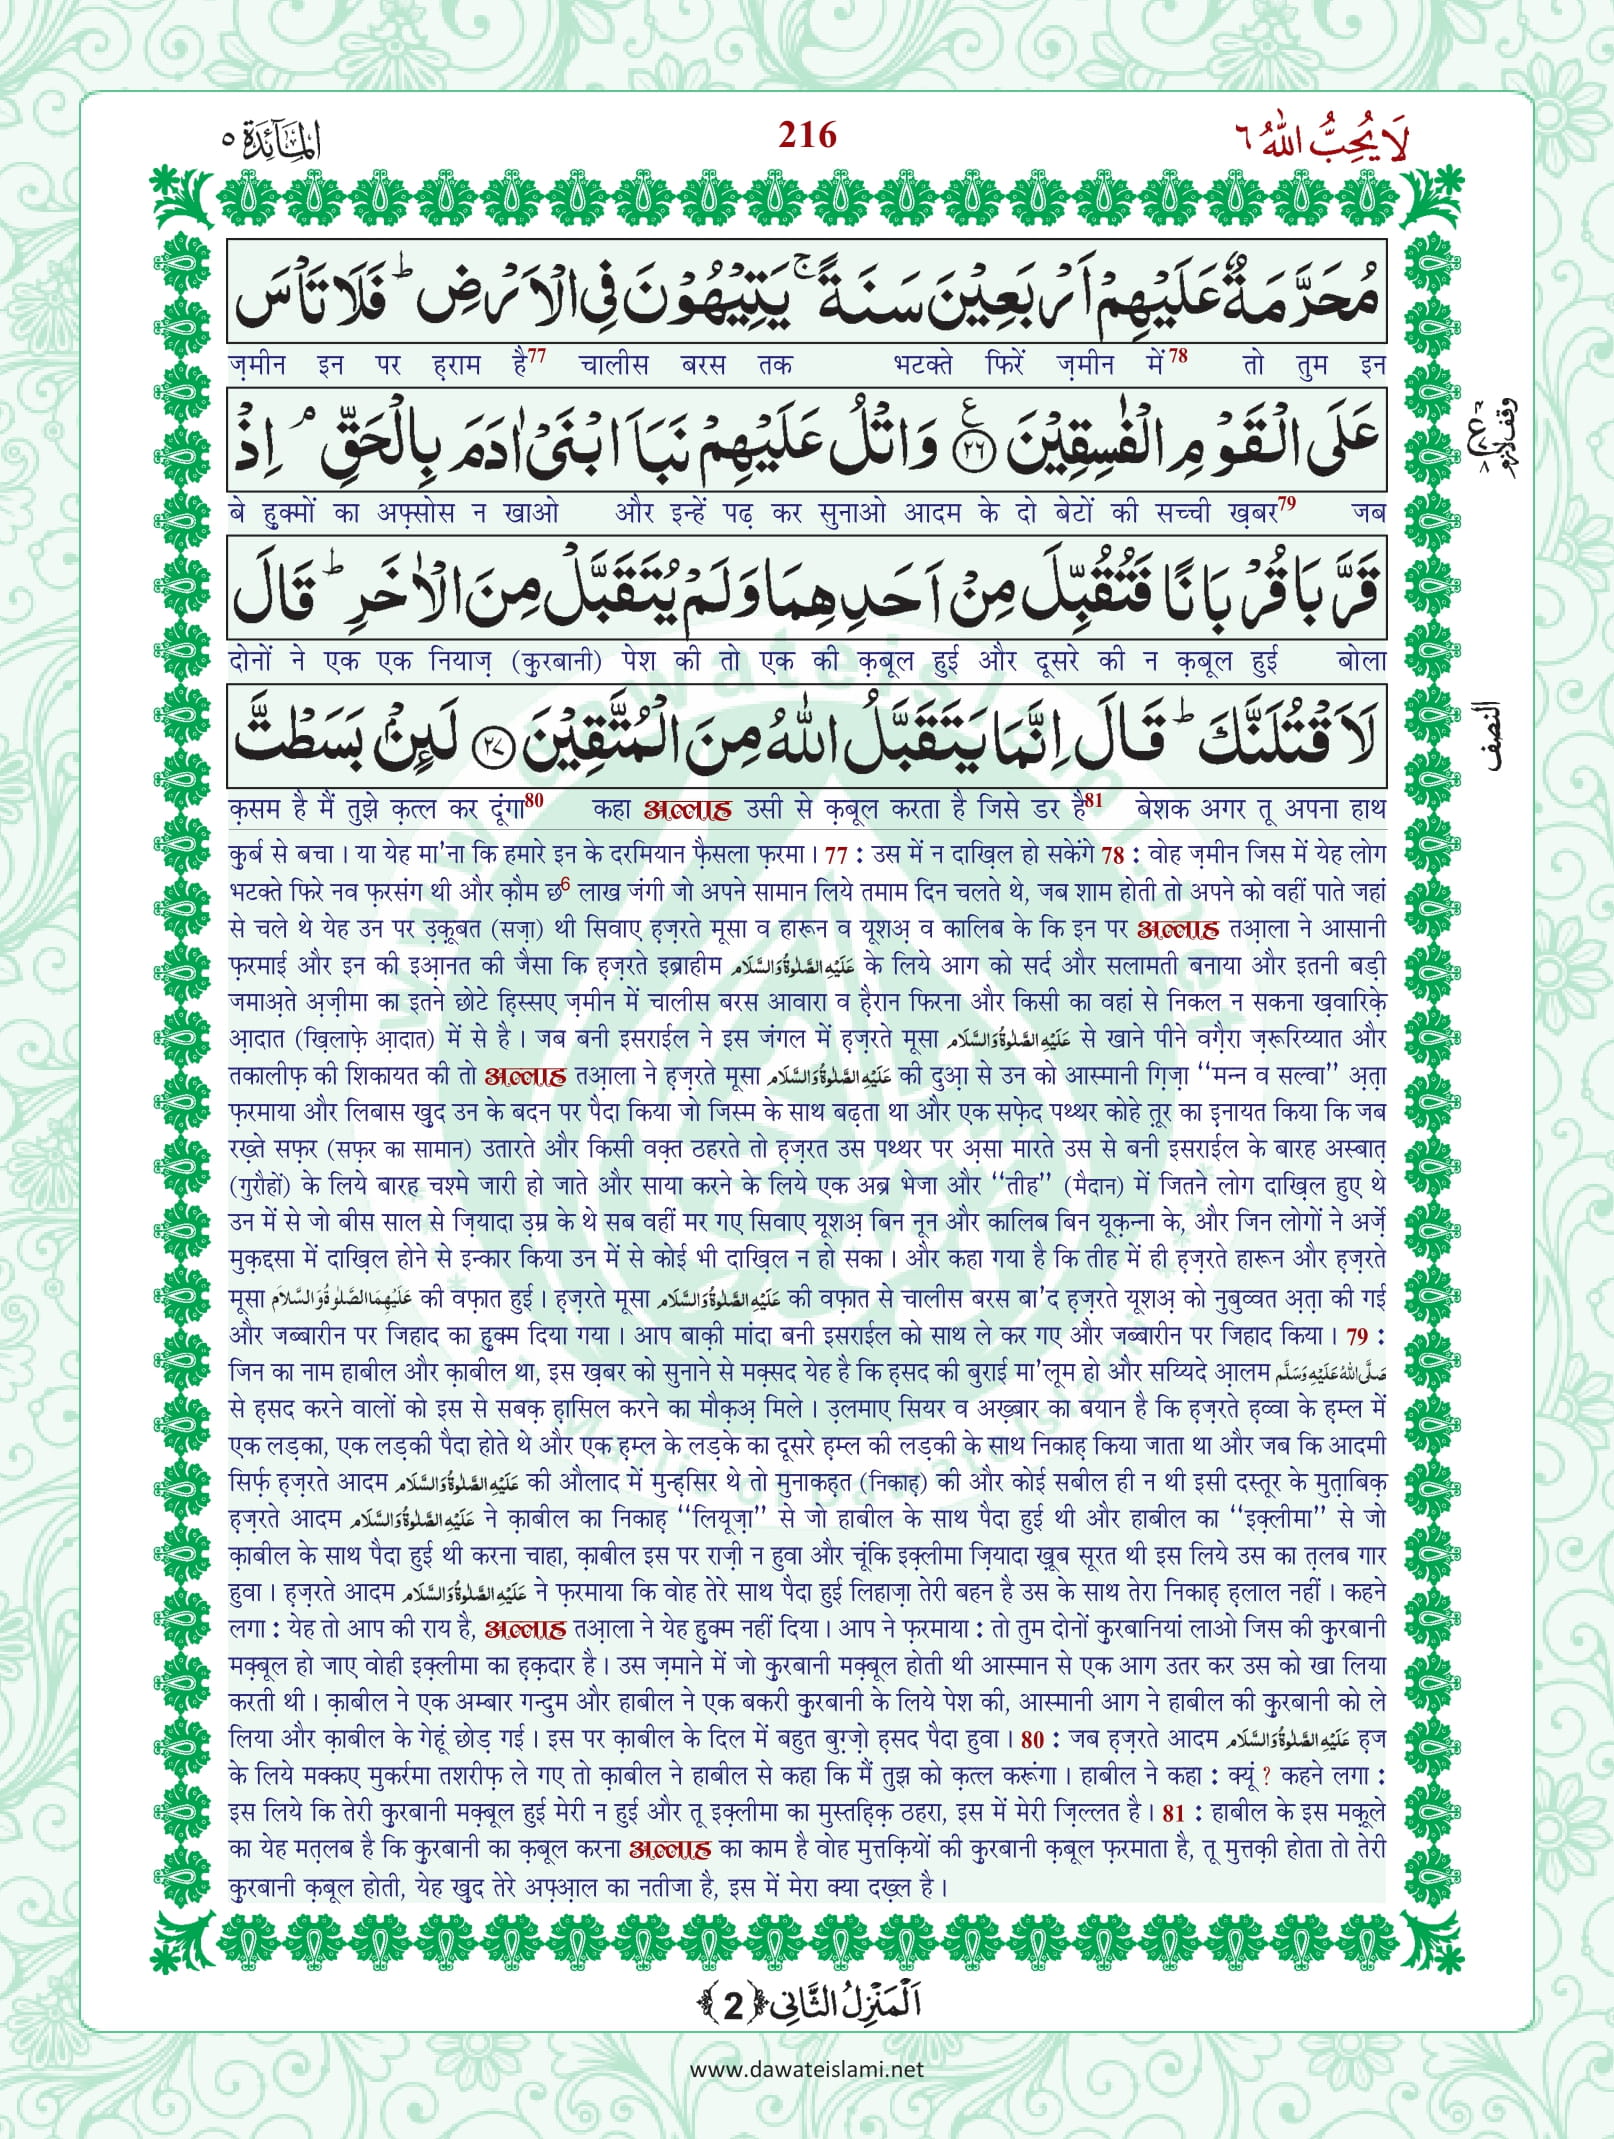 المآئدة ٥
216
لَا يُحِبُّ اللّٰهُ ٦
مُحَرَّمَةٌ عَلَيْهِمْ اَرْبَعِيْنَ سَنَةً ۚ يَتِيْهُوْنَ فِى الْاَرْضِ ؕ فَلَا تَاْسَ
ज़मीन इन पर ह़राम है77 चालीस बरस तक भटक्ते फिरें ज़मीन में78 तो तुम इन
عَلَى الْقَوْمِ الْفٰسِقِيْنَ ﴿٢٦﴾ وَاتْلُ عَلَيْهِمْ نَبَاَ ابْنَىْ اٰدَمَ بِالْحَقِّ ۘ اِذْ
وقف لازم
बे हुक्मों का अफ़्सोस न खाओ और इन्हें पढ़ कर सुनाओ आदम के दो बेटों की सच्ची ख़बर79 जब
قَرَّبَا قُرْبَانًا فَتُقُبِّلَ مِنْ اَحَدِهِمَا وَلَمْ يُتَقَبَّلْ مِنَ الْاٰخَرِ ؕ قَالَ
दोनों ने एक एक नियाज़ (क़ुरबानी) पेश की तो एक की क़बूल हुई और दूसरे की न क़बूल हुई बोला
لَاَقْتُلَنَّكَ ؕ قَالَ اِنَّمَا يَتَقَبَّلُ اللّٰهُ مِنَ الْمُتَّقِيْنَ ﴿٢٧﴾ لَئِنْۢ بَسَطْتَّ
النصف
क़सम है मैं तुझे क़त्ल कर दूंगा80 कहा अल्लाह उसी से क़बूल करता है जिसे डर है81 बेशक अगर तू अपना हाथ
क़ुर्ब से बचा । या येह मा'ना कि हमारे इन के दरमियान फ़ैसला फ़रमा । 77 : उस में न दाख़िल हो सकेंगे 78 : वोह ज़मीन जिस में येह लोग
भटक्ते फिरे नव फ़रसंग थी और क़ौम छ6 लाख जंगी जो अपने सामान लिये तमाम दिन चलते थे, जब शाम होती तो अपने को वहीं पाते जहां
से चले थे येह उन पर उ़क़ूबत (सज़ा) थी सिवाए ह़ज़रते मूसा व हारून व यूशअ़ व कालिब के कि इन पर अल्लाह तआ़ला ने आसानी
फ़रमाई और इन की इआ़नत की जैसा कि ह़ज़रते इब्राहीम عَلَيْهِ الصَّلٰوةُ وَالسَّلَام के लिये आग को सर्द और सलामती बनाया और इतनी बड़ी
जमाअ़ते अ़ज़ीमा का इतने छोटे ह़िस्सए ज़मीन में चालीस बरस आवारा व ह़ैरान फिरना और किसी का वहां से निकल न सकना ख़वारिक़े
आ़दात (ख़िलाफ़े आ़दात) में से है । जब बनी इसराईल ने इस जंगल में ह़ज़रते मूसा عَلَيْهِ الصَّلٰوةُ وَالسَّلَام से खाने पीने वग़ैरा ज़रूरिय्यात और
तकालीफ़ की शिकायत की तो अल्लाह तआ़ला ने ह़ज़रते मूसा عَلَيْهِ الصَّلٰوةُ وَالسَّلَام की दुआ़ से उन को आस्मानी ग़िज़ा ‘‘मन्न व सल्वा’’ अ़त़ा
फ़रमाया और लिबास ख़ुद उन के बदन पर पैदा किया जो जिस्म के साथ बढ़ता था और एक सफ़ेद पथ्थर कोहे त़ूर का इ़नायत किया कि जब
रख़्ते सफ़र (सफ़र का सामान) उतारते और किसी वक़्त ठहरते तो ह़ज़रत उस पथ्थर पर अ़सा मारते उस से बनी इसराईल के बारह अस्बात़
(गुरौहों) के लिये बारह चश्मे जारी हो जाते और साया करने के लिये एक अब्र भेजा और ‘‘तीह’’ (मैदान) में जितने लोग दाख़िल हुए थे
उन में से जो बीस साल से ज़ियादा उ़म्र के थे सब वहीं मर गए सिवाए यूशअ़ बिन नून और कालिब बिन यूक़न्ना के, और जिन लोगों ने अर्ज़े
मुक़द्दसा में दाख़िल होने से इन्कार किया उन में से कोई भी दाख़िल न हो सका । और कहा गया है कि तीह में ही ह़ज़रते हारून और ह़ज़रते
मूसा عَلَيْهِمَا الصَّلٰوةُ وَالسَّلَام की वफ़ात हुई । ह़ज़रते मूसा عَلَيْهِ الصَّلٰوةُ وَالسَّلَام की वफ़ात से चालीस बरस बा'द ह़ज़रते यूशअ़ को नुबुव्वत अ़त़ा की गई
और जब्बारीन पर जिहाद का हुक्म दिया गया । आप बाक़ी मांदा बनी इसराईल को साथ ले कर गए और जब्बारीन पर जिहाद किया । 79 :
जिन का नाम हाबील और क़ाबील था, इस ख़बर को सुनाने से मक़्सद येह है कि ह़सद की बुराई मा'लूम हो और सय्यिदे आ़लम صَلَّى اللهُ عَلَيْهِ وَسَلَّم
से ह़सद करने वालों को इस से सबक़ ह़ासिल करने का मौक़अ़ मिले । उ़लमाए सियर व अख़्बार का बयान है कि ह़ज़रते ह़व्वा के ह़म्ल में
एक लड़का, एक लड़की पैदा होते थे और एक ह़म्ल के लड़के का दूसरे ह़म्ल की लड़की के साथ निकाह़ किया जाता था और जब कि आदमी
सिर्फ़ ह़ज़रते आदम عَلَيْهِ الصَّلٰوةُ وَالسَّلَام की औलाद में मुन्ह़सिर थे तो मुनाकह़त (निकाह़) की और कोई सबील ही न थी इसी दस्तूर के मुत़ाबिक़
ह़ज़रते आदम عَلَيْهِ الصَّلٰوةُ وَالسَّلَام ने क़ाबील का निकाह़ ‘‘लियूज़ा’’ से जो हाबील के साथ पैदा हुई थी और हाबील का ‘‘इक़्लीमा’’ से जो
क़ाबील के साथ पैदा हुई थी करना चाहा, क़ाबील इस पर राज़ी न हुवा और चूंकि इक़्लीमा ज़ियादा ख़ूब सूरत थी इस लिये उस का त़लब गार
हुवा । ह़ज़रते आदम عَلَيْهِ الصَّلٰوةُ وَالسَّلَام ने फ़रमाया कि वोह तेरे साथ पैदा हुई लिहाज़ा तेरी बहन है उस के साथ तेरा निकाह़ ह़लाल नहीं । कहने
लगा : येह तो आप की राय है, अल्लाह तआ़ला ने येह हुक्म नहीं दिया । आप ने फ़रमाया : तो तुम दोनों क़ुरबानियां लाओ जिस की क़ुरबानी
मक़्बूल हो जाए वोही इक़्लीमा का ह़क़दार है । उस ज़माने में जो क़ुरबानी मक़्बूल होती थी आस्मान से एक आग उतर कर उस को खा लिया
करती थी । क़ाबील ने एक अम्बार गन्दुम और हाबील ने एक बकरी क़ुरबानी के लिये पेश की, आस्मानी आग ने हाबील की क़ुरबानी को ले
लिया और क़ाबील के गेहूं छोड़ गई । इस पर क़ाबील के दिल में बहुत बुग़्ज़ो ह़सद पैदा हुवा । 80 : जब ह़ज़रते आदम عَلَيْهِ الصَّلٰوةُ وَالسَّلَام ह़ज
के लिये मक्कए मुकर्रमा तशरीफ़ ले गए तो क़ाबील ने हाबील से कहा कि मैं तुझ को क़त्ल करूंगा । हाबील ने कहा : क्यूं ? कहने लगा :
इस लिये कि तेरी क़ुरबानी मक़्बूल हुई मेरी न हुई और तू इक़्लीमा का मुस्तह़िक़ ठहरा, इस में मेरी ज़िल्लत है । 81 : हाबील के इस मक़ूले
का येह मत़लब है कि क़ुरबानी का क़बूल करना अल्लाह का काम है वोह मुत्तक़ियों की क़ुरबानी क़बूल फ़रमाता है, तू मुत्तक़ी होता तो तेरी
क़ुरबानी क़बूल होती, येह ख़ुद तेरे अफ़्आ़ल का नतीजा है, इस में मेरा क्या दख़्ल है ।
اَلْمَنْزِلُ الثَّانِى ﴿2﴾
www.dawateislami.net